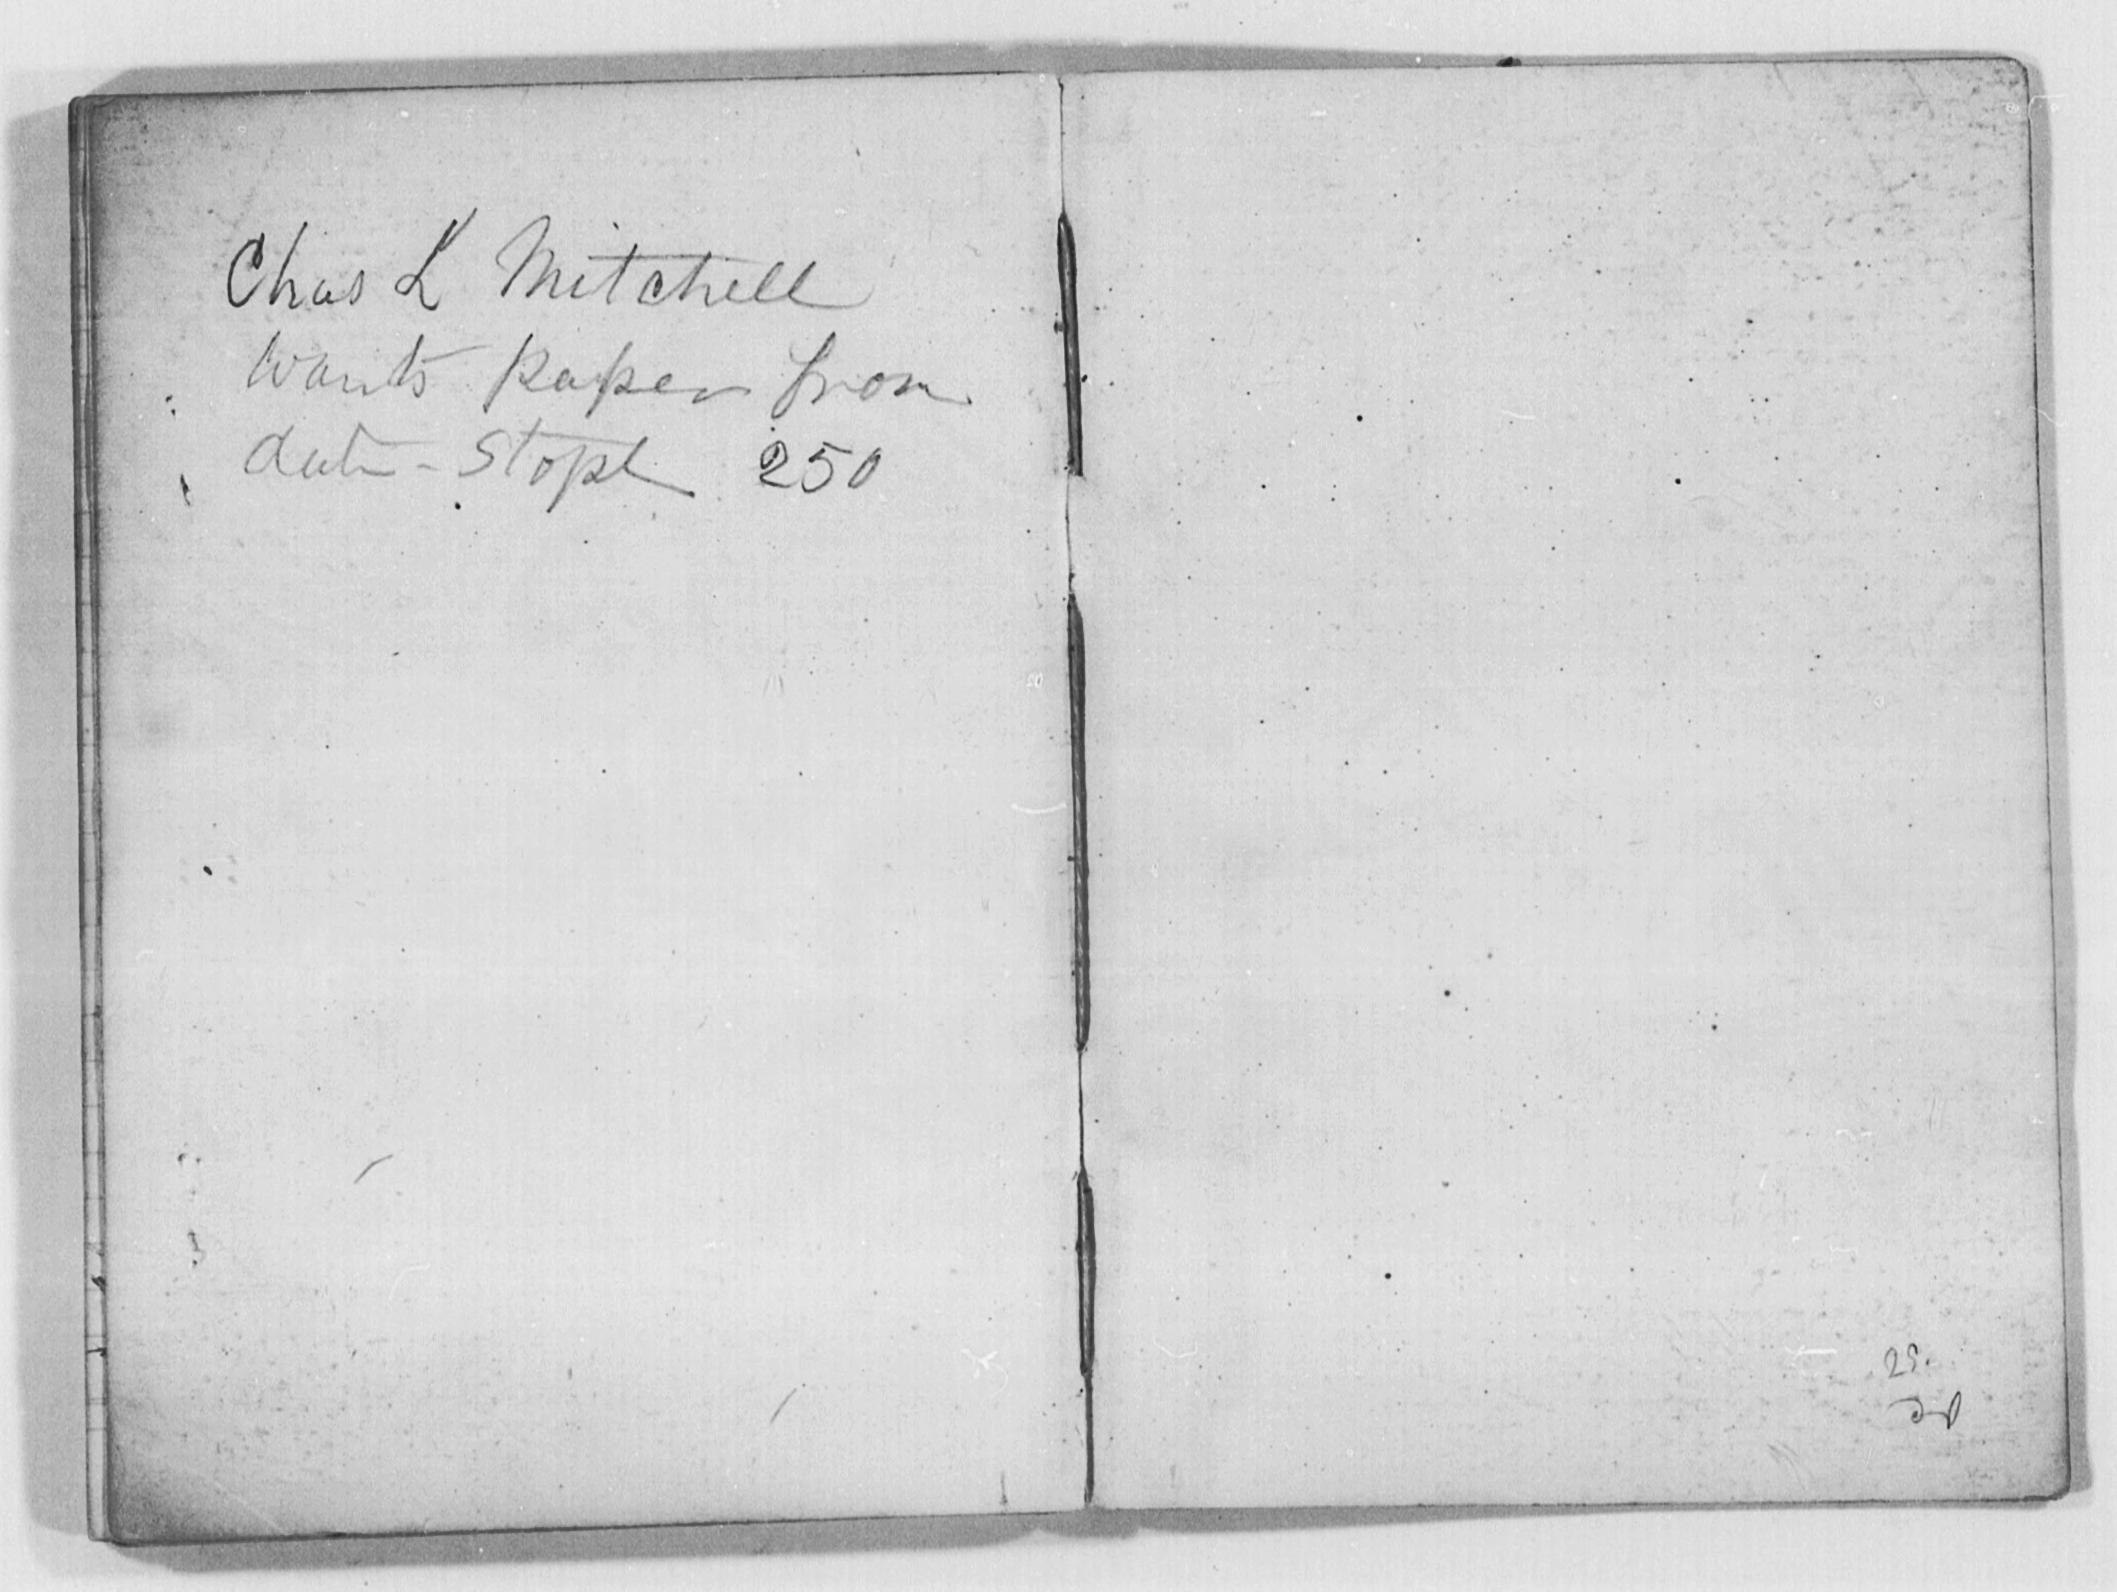 Chas L Mitchell
wants paper from
date - Stopd 250
25.